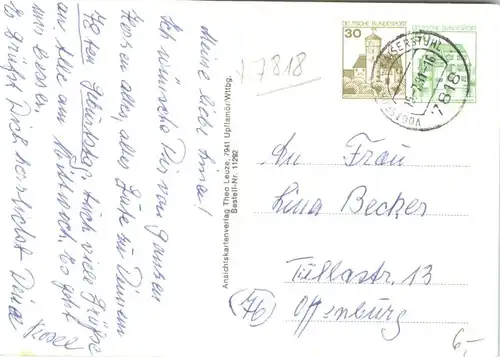 Meine liebe Lina!
Ich wünsche Dir von ganzem
Herzen alles, alles Gute zu Deinem
Geburtstag. Auch viele Grüße
an Alle am
uns besser.
Es grüßt Dich herzlichst Deine
Rosel
Ansichtskartenverlag Theo Leuze, 7941 Upflamör/Wttbg.
Bestell-Nr. 11292
17818
DEUTSCHE BUNDESPOST
30
DEUTSCHE BUNDESPOST
VOGTSBURG
7818
An Frau
Lina Becker
Tullastr. 13
(76) Offenburg
6,-